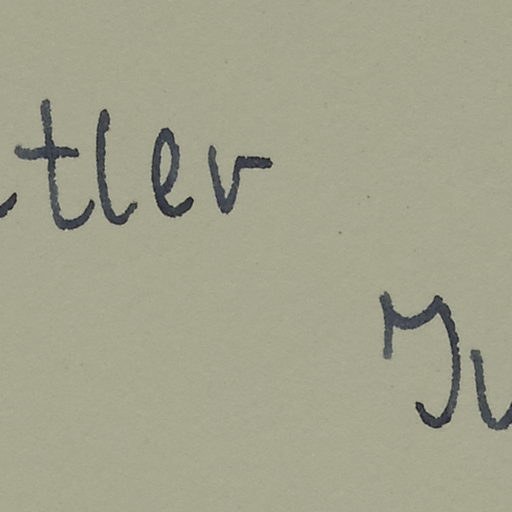 tler
Ju